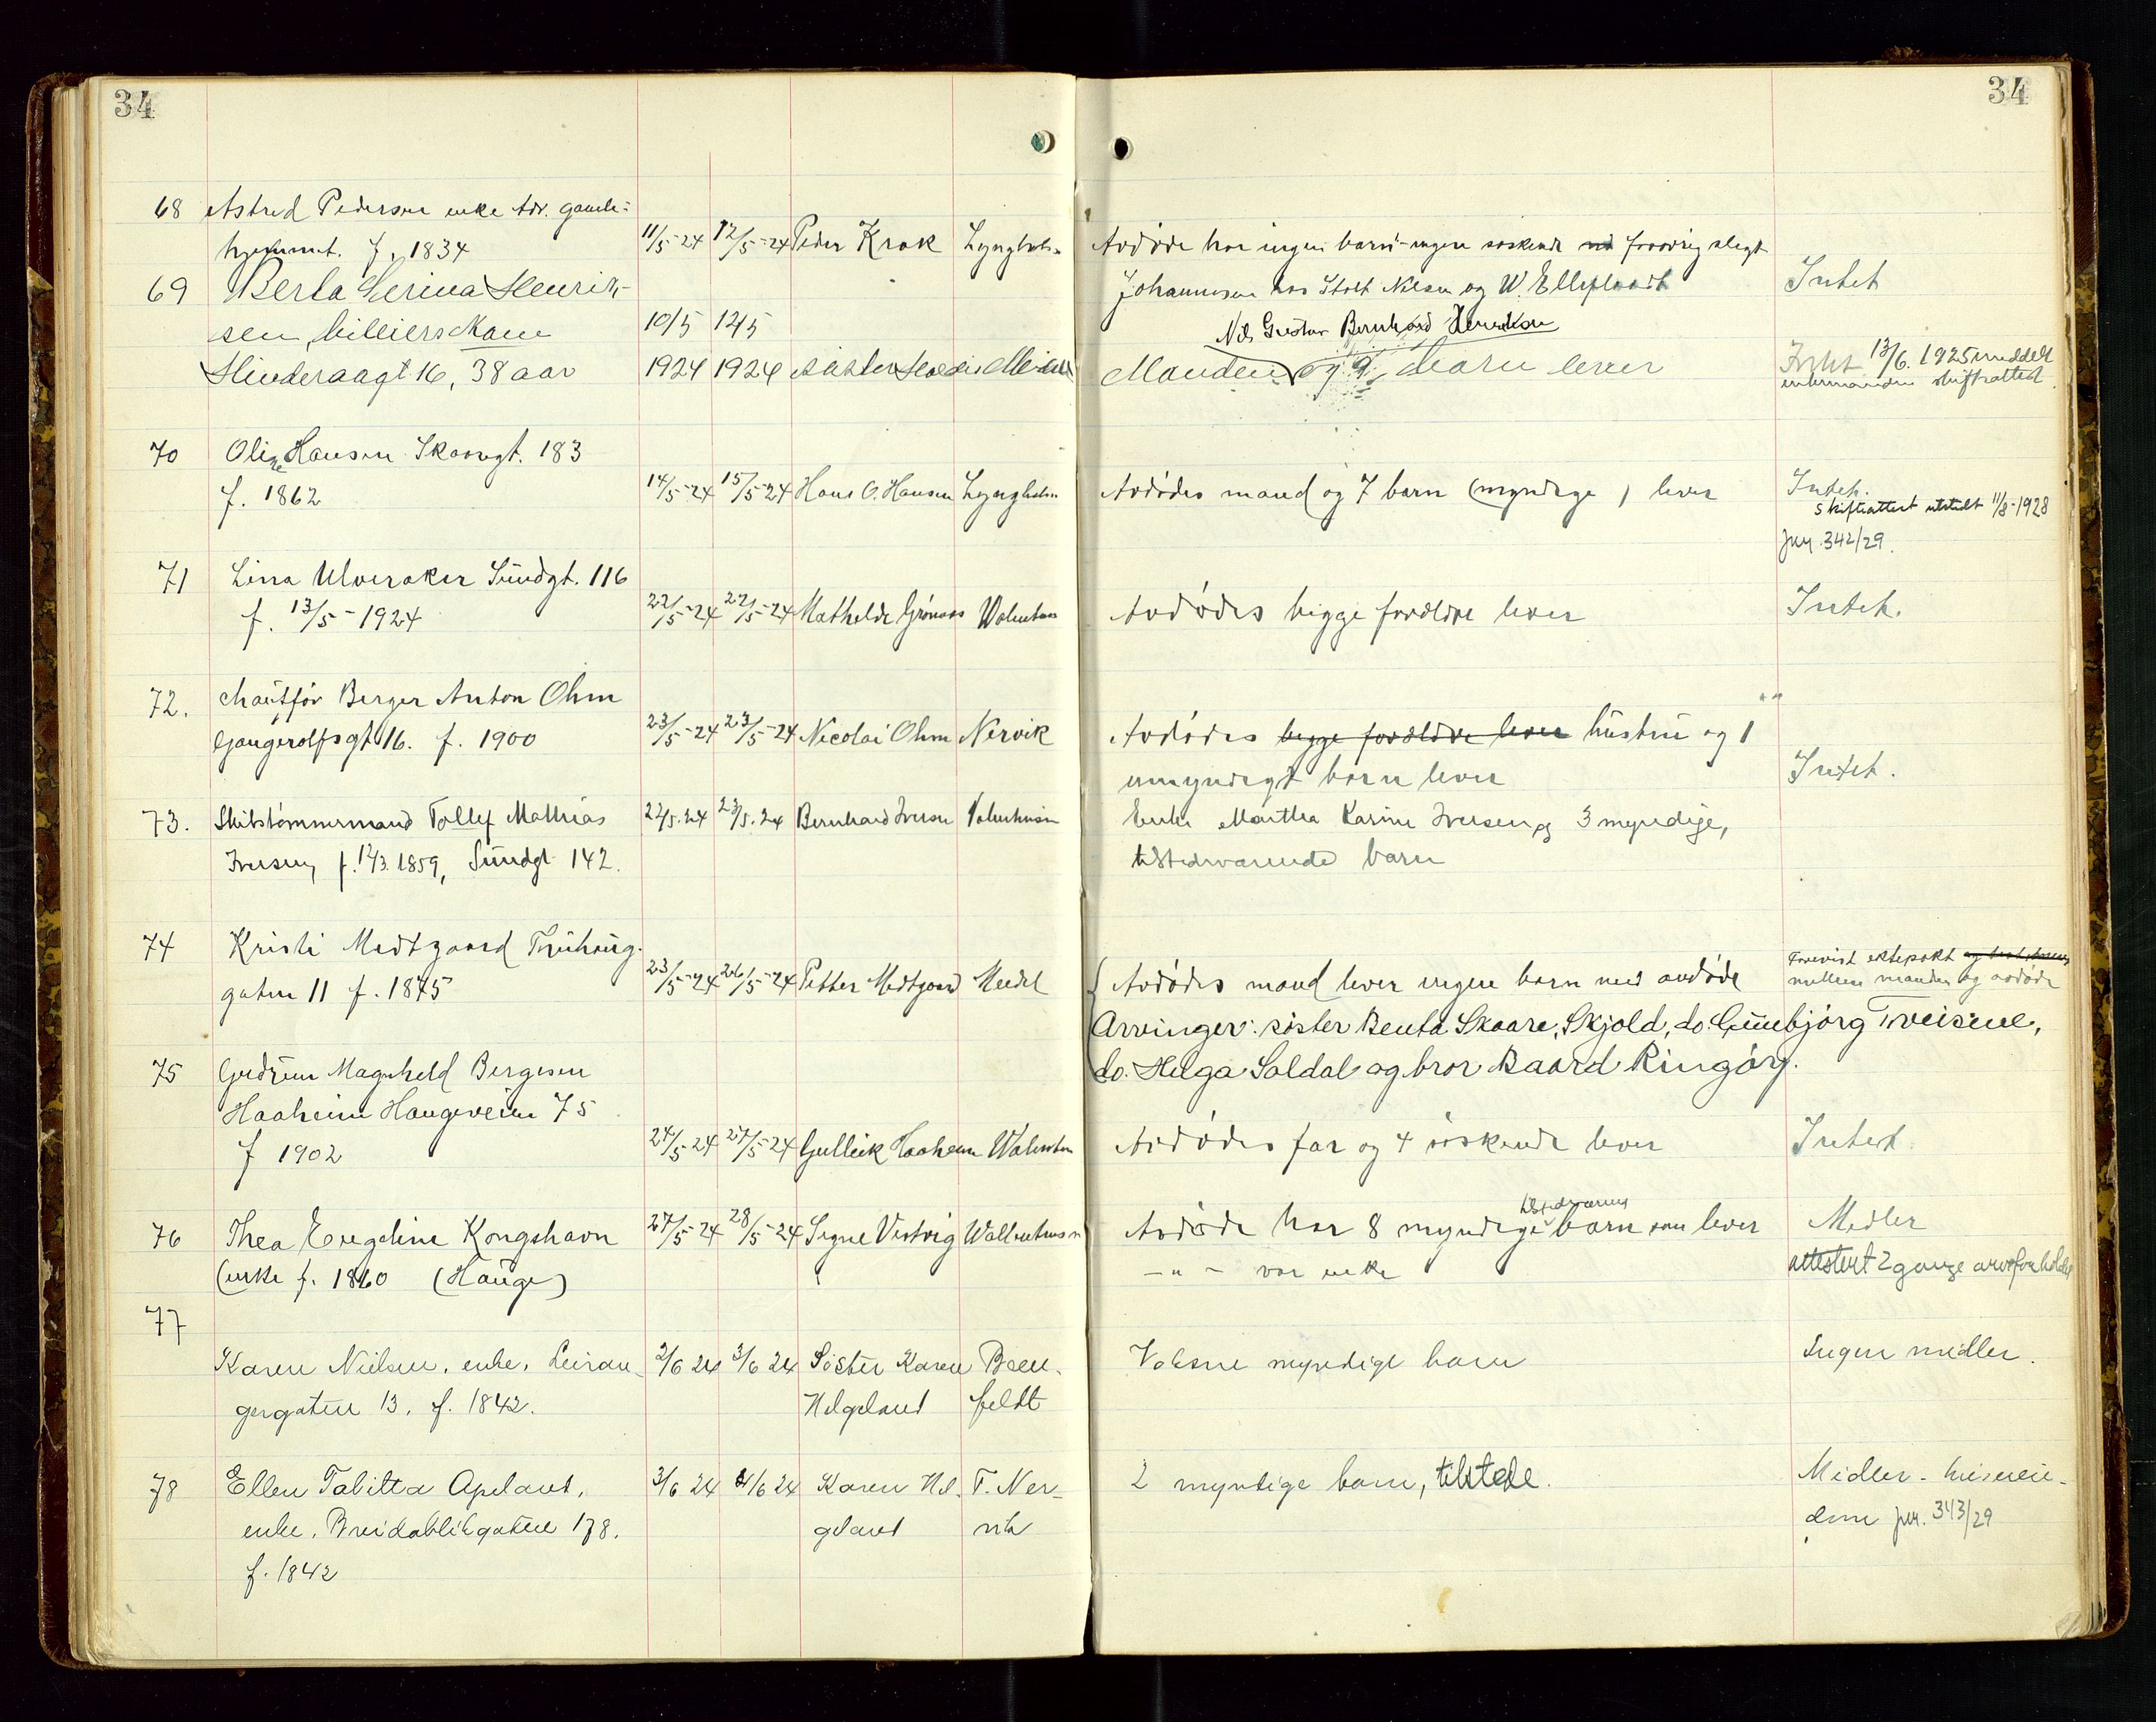 34
34
68 Astrid Pedersen enke Adr. gamle-
hjemmet. f. 1834 11/5-24 12/5-24 Peder Krok Lyngholm
Avdøde har ingen barn - ingen søskende forøvrig slegt
Johannesen hos Stolt Nilsen og W. Intet
69 Berta Serina Henrik-
sen, 10/5 12/5
Hinderaagt 16, 38 aar 1924 1924 søster
Nils Gustav Bernhard Henriksen
Manden og 9 barn lever
Intet 13/6. 1925 meddelt
enkemanden skifteattest.
70 Oline Hansen Skaregt. 183
f. 1862 14/5-24 15/5-24 Hans O. Hansen Lyngholm
Avdødes mand og 7 barn (myndige) lever Intet.
Skifteattest utstedt 11/8-1928
jnr. 342/29.
71 Lina Ulveraker Sundgt. 116
f. 13/5-1924 22/5-24 22/5-24 Mathilde Grønaas Walentsen
Avdødes begge forældre lever Intet.
72. Berger Anton Ohm
Gangerolfsgt 16. f. 1900 23/5-24 23/5-24 Nicolai Ohm Nervik
Avdødes begge forældre lever hustru og 1
umyndigt barn lever Intet.
73. Skibstømmermand Tollef Mathias 22/5.24 23/5.24 Bernhard Iversen
Iversen, f. 12/3.1859, Sundgt 142.
Enke Martha Karine Iversen og 3 myndige,
tilstedeværende barn
74 Kristi Medtgaard
gaten 11 f. 1845 23/5-24 26/5-24 Petter Medtgaard Meidel
Avdødes mand lever ingen barn med avdøde
Forevist ektepakt
mellem manden og avdøde
Arvinger: søster Benta Skaare, Skjold, do. Gunbjørg Tveisene,
do. Helga Saldal og bror Baard Ringøig.
75 Gudrun Magnhild Bergesen
Haaheim Haugeveien 75
f 1902 24/5-24 27/5-24 Gullick Haaheim
Avdødes far og 4 søskende lever Intet.
76 Thea Engeline Kongshavn 27/5-24 28/5-24 Signe Vestvig
(enke f. 1860 (Hauge)
tilstedværende
Avdøde har 8 myndige barn som lever Midler
-"- var enke attestert 2 gange arveforholdet
77
Karen Nielsen, enke, Leiran- 2/6 24 3/6 24 Søster Karen Breen-
gergaten 13. f. 1842. Helgeland feldt
Voksne myndige barn Ingen midler.
78 Ellen Tabitta Apeland, 3/6 24 4/6 24 Karen Hel- T. Ner-
enke, Breidablikgaten 178. geland vik
f. 1842
2 myndige barn, tilstede. Midler - huseien-
dom jnr. 343/29